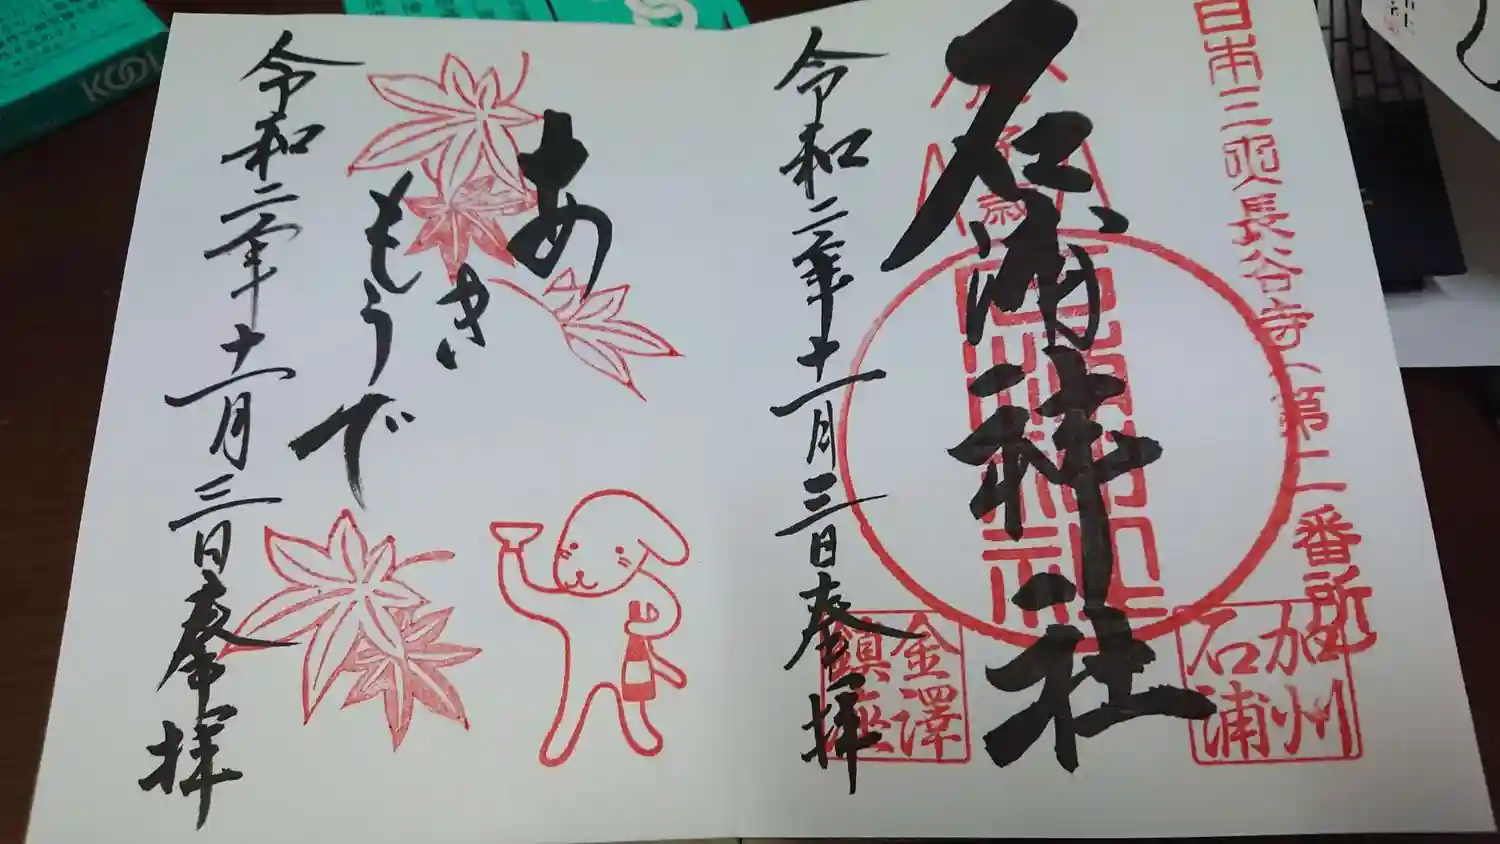 日本三興長谷寺第二番所
石浦神社
加州
石浦
金澤
鎮座
令和二年十一月三日奉拝
あき
もうで
令和二年十一月三日奉拝
KOOL